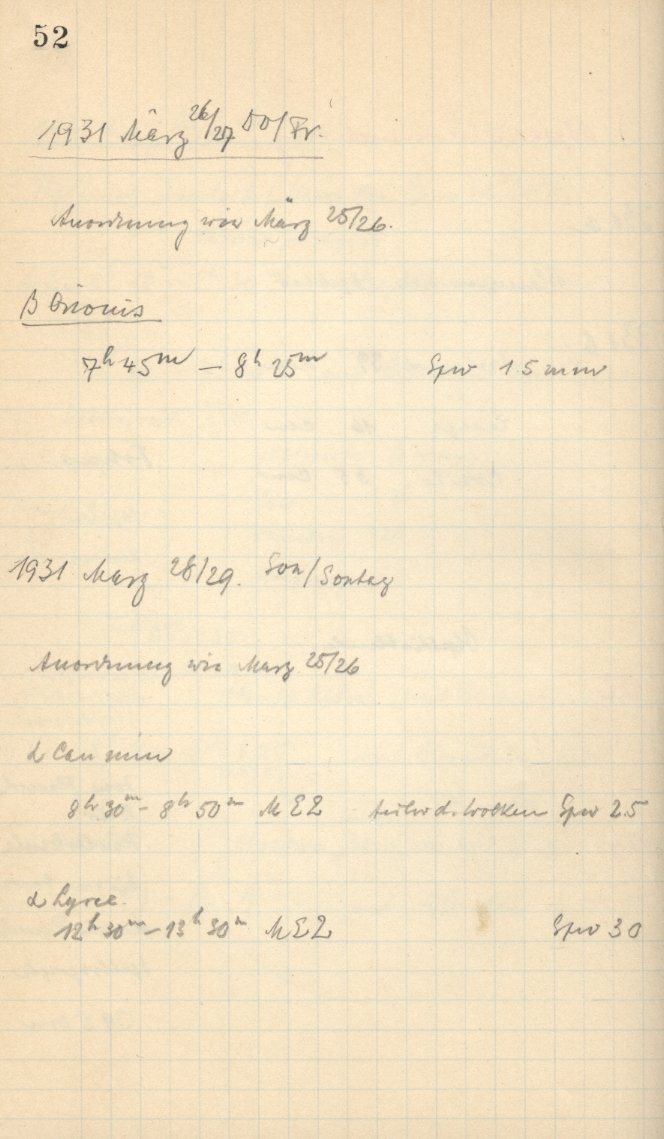 52
1931 März 26/27 Do/Fr.
Anordnung wie März 25/26.
β Orionis
7h 45m – 8h 25m Spw 15 mm
1931 März 28/29. Son/Sontag
Anordnung wie März 25/26
α Can min
8h 30m – 8h 50m MEZ d. Wolken Spw 25
α Lyrae
12h 30m – 13h 30m MEZ Spw 30